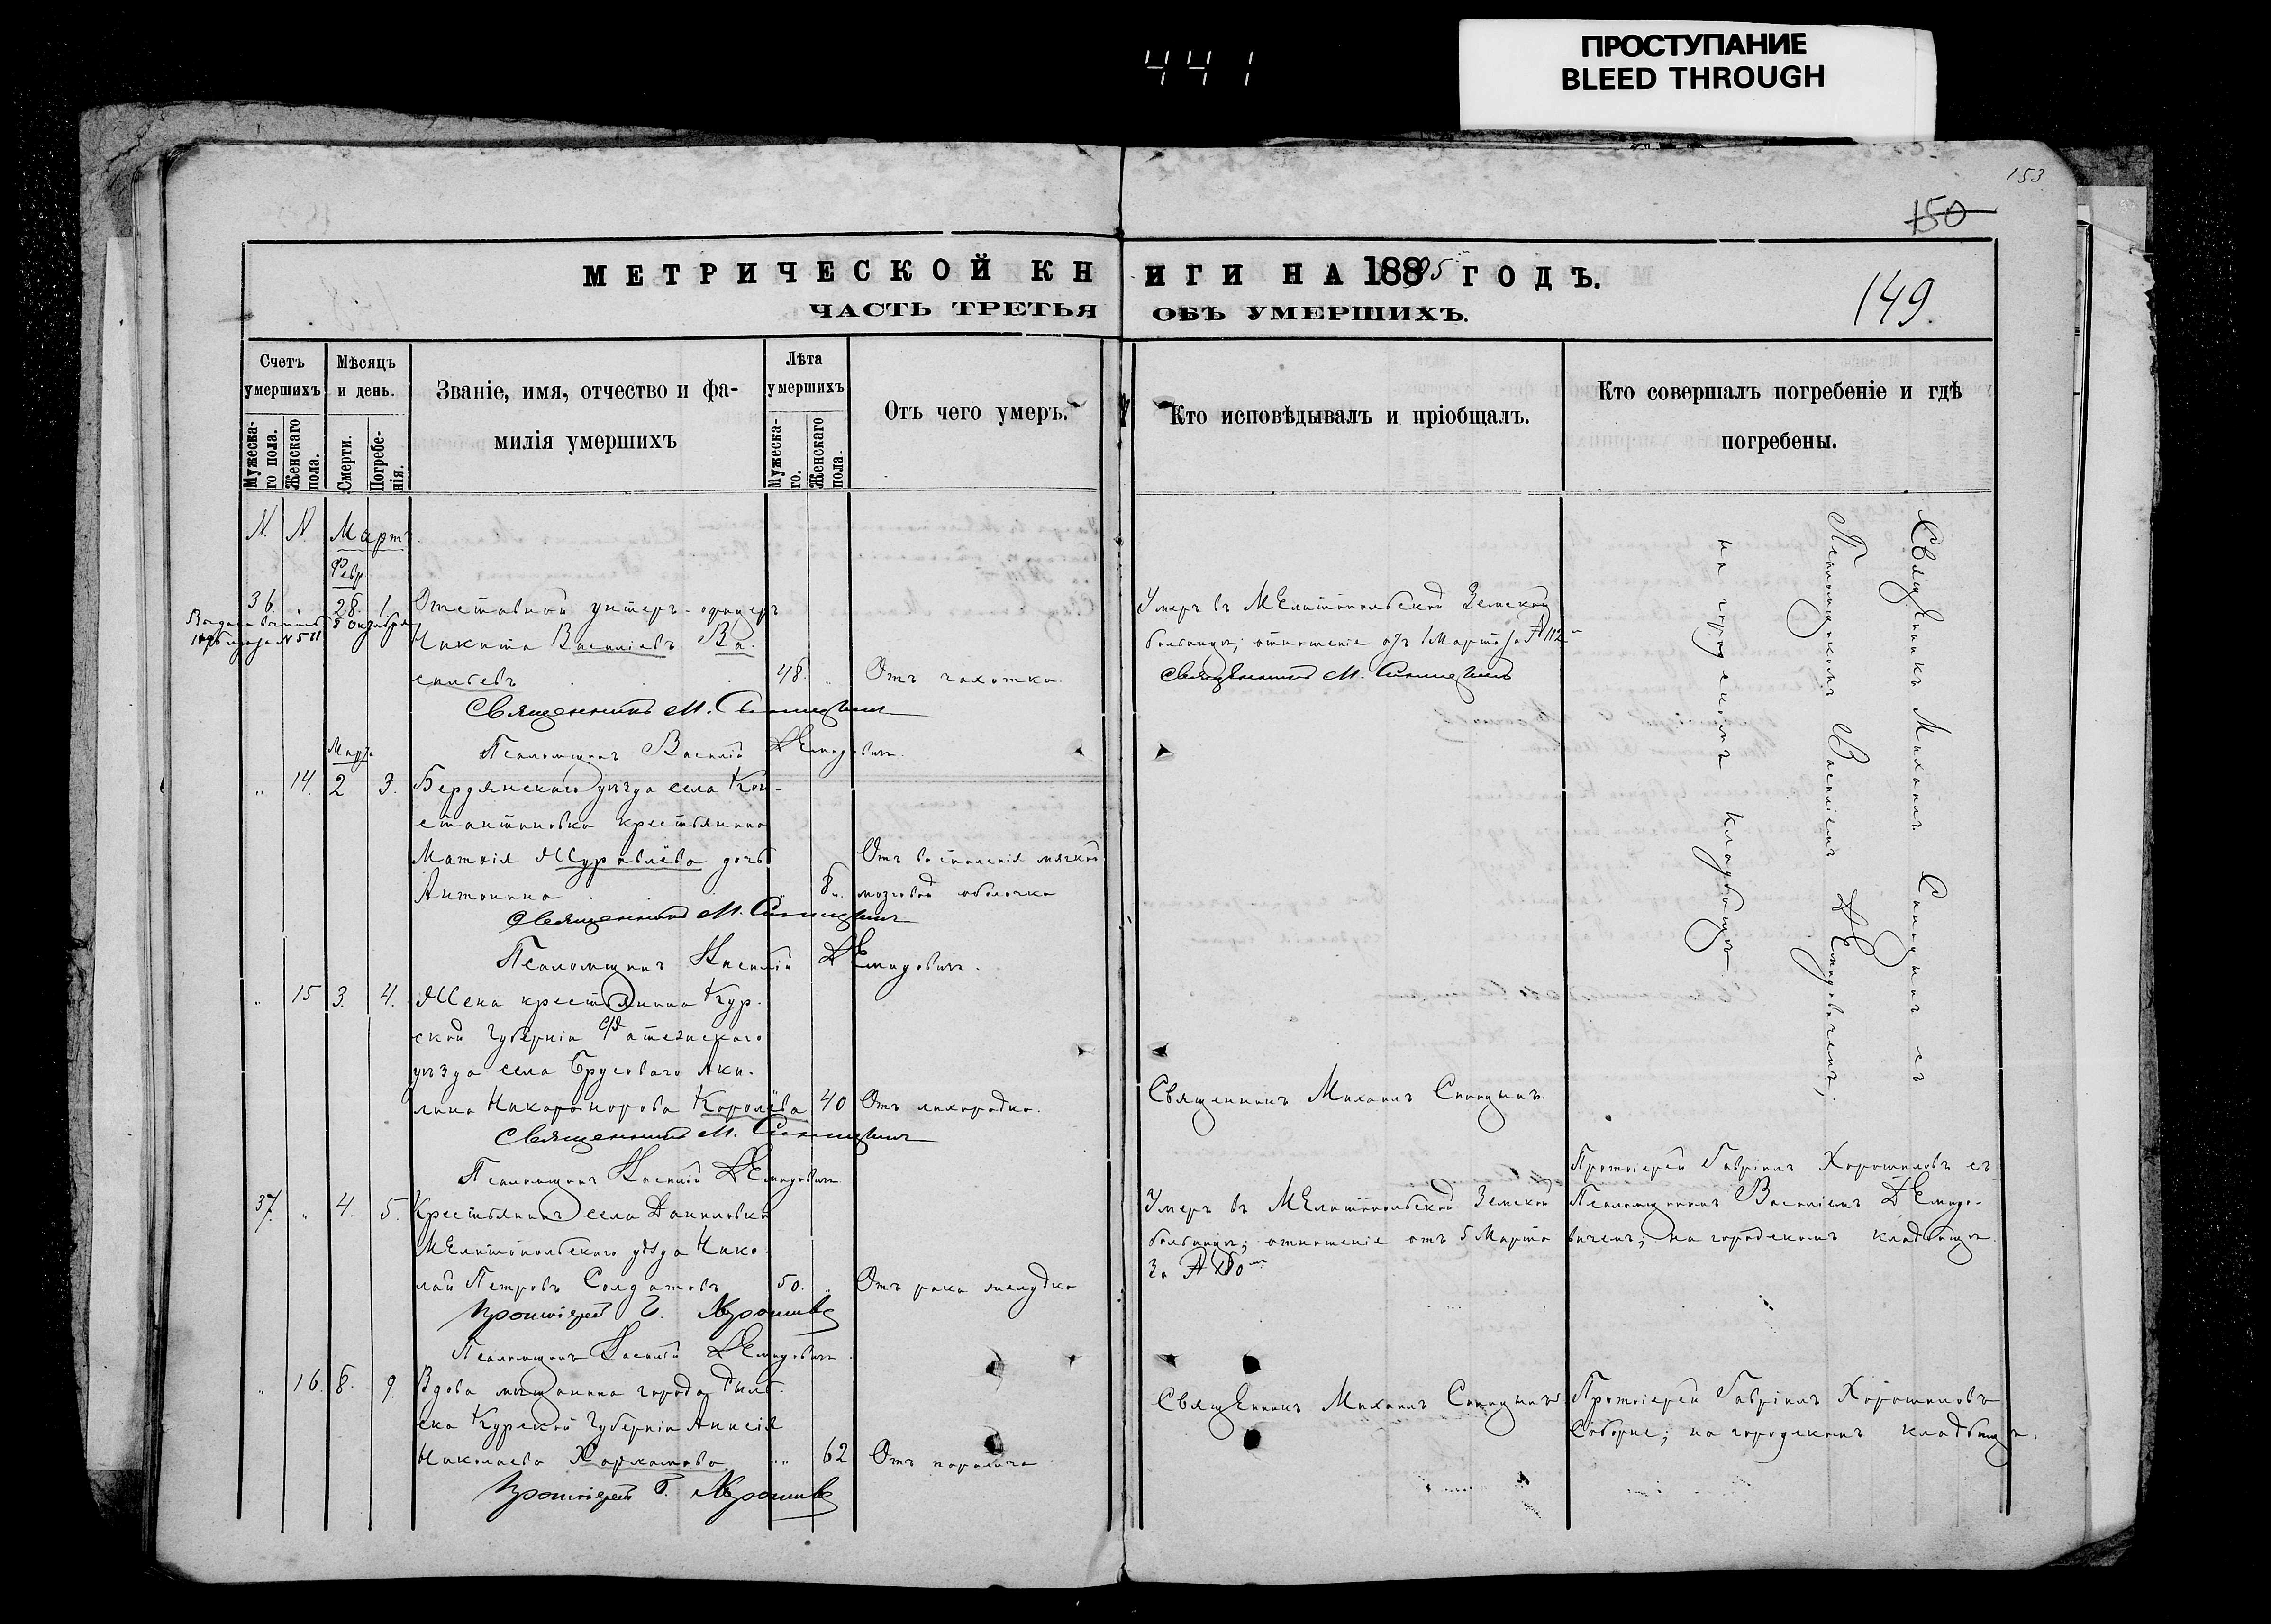 441
ПРОСТУПАНИЕ
BLEED THROUGH
153
150
МЕТРИЧЕСКОЙ КНИГИ НА 1895 ГОДЪ.
149
ЧАСТЬ ТРЕТЬЯ ОБЪ УМЕРШИХЪ.
Счетъ умершихъ
Мужеска-го пола.
Женскаго пола.
Мѣсяцъ и день.
Смерти.
Погребе-нія.
Званіе, имя, отчество и фа-
милія умершихъ
Лѣта умершихъ
Мужеска-го.
Женскаго пола.
Отъ чего умеръ.
Кто исповѣдывалъ и пріобщалъ.
Кто совершалъ погребеніе и гдѣ
погребены.
N. N. Мартъ.
Февр.
36. " 28. 1. Отставной унтеръ-офицеръ
Никита Василіевъ Ва-
сильевъ 48. " Отъ чахотки.
Умеръ въ Мелитопольской Земской
больницѣ; отношеніе отъ 1 Марта за № 112
Священникъ М. Синицынъ
Священникъ М. Синицынъ
Псаломщикъ Василій Демидовичъ.
Священникъ Михаилъ Синицынъ съ
Псаломщикомъ Василіемъ Демидовичемъ,
на городскомъ кладбищѣ.
Марта
" 14. 2 3. Бердянскаго уѣзда села Кон-
стантиновки крестьянина
Матвія Журавлёва дочь
Антонина " 8 м.
Отъ воспаленія мягкой
мозговой оболочки
Священникъ М. Синицынъ
Псаломщикъ Василій Демидовичъ.
" 15 3. 4. Жена крестьянина Кур-
ской губерніи Фатежскаго
уѣзда села Брусоваго Аки-
лина Никаронорова Королёва 40 Отъ лихорадки.
Священникъ Михаилъ Синицынъ.
Священникъ М. Синицынъ
Псаломщикъ Василій Демидовичъ
37. " 4. 5. Крестьянинъ села Даниловки
Мелитопольскаго уѣзда Нико-
лай Петровъ Солдатовъ 50. " Отъ рака желудка
Умеръ въ Мелитопольской Земской
больницѣ; отношеніе отъ 5 Марта
за №
Протоіерей Гавріилъ Хорошиловъ съ
Псаломщикомъ Василіемъ Демидо-
вичемъ; на городскомъ кладбищѣ.
Протоіерей Г. Хорошиловъ
Псаломщикъ Василій Демидовичъ
" 16. 8. 9. Вдова мѣщанина города Рыль-
ска Курской губерніи Анисія
Николаева Харламова. " 62 Отъ паралича
Священникъ Михаилъ Синицынъ.
Протоіерей Гавріилъ Хорошиловъ
Соборне; на городскомъ кладбищѣ.
Протоіерей Г. Хорошиловъ